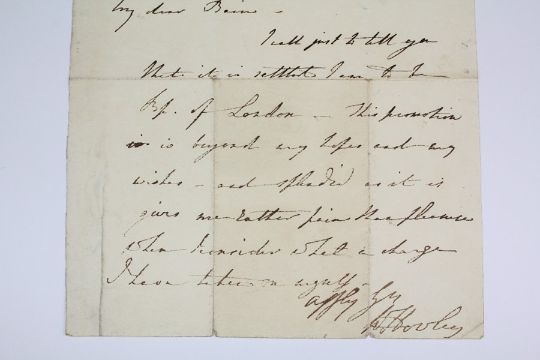 My dear Baine -
I call just to tell you
that it is settled I am to be
Bp. of London - This promotion
is is beyond my hopes and my
wishes - and splendid as it is
gives me rather pain than pleasure
when I consider what a charge
I have taken on myself -
affly yrs
W Howley